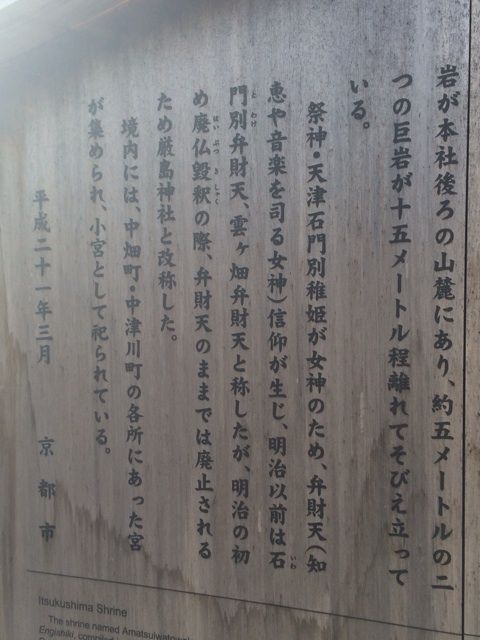 岩が本社後ろの山麓にあり、約五メートルの二
つの巨岩が十五メートル程離れてそびえ立って
いる。
祭神・天津石門別稚姫が女神のため、弁財天（知
恵や音楽を司る女神）信仰が生じ、明治以前は石
門別弁財天、雲ヶ畑弁財天と称したが、明治の初
め廃仏毀釈の際、弁財天のままでは廃止される
ため厳島神社と改称した。
境内には、中畑町・中津川町の各所にあった宮
が集められ、小宮として祀られている。
平成二十一年三月 京都市
Itsukushima Shrine
The shrine named Amatsuiwatow
Engishiki, compiled